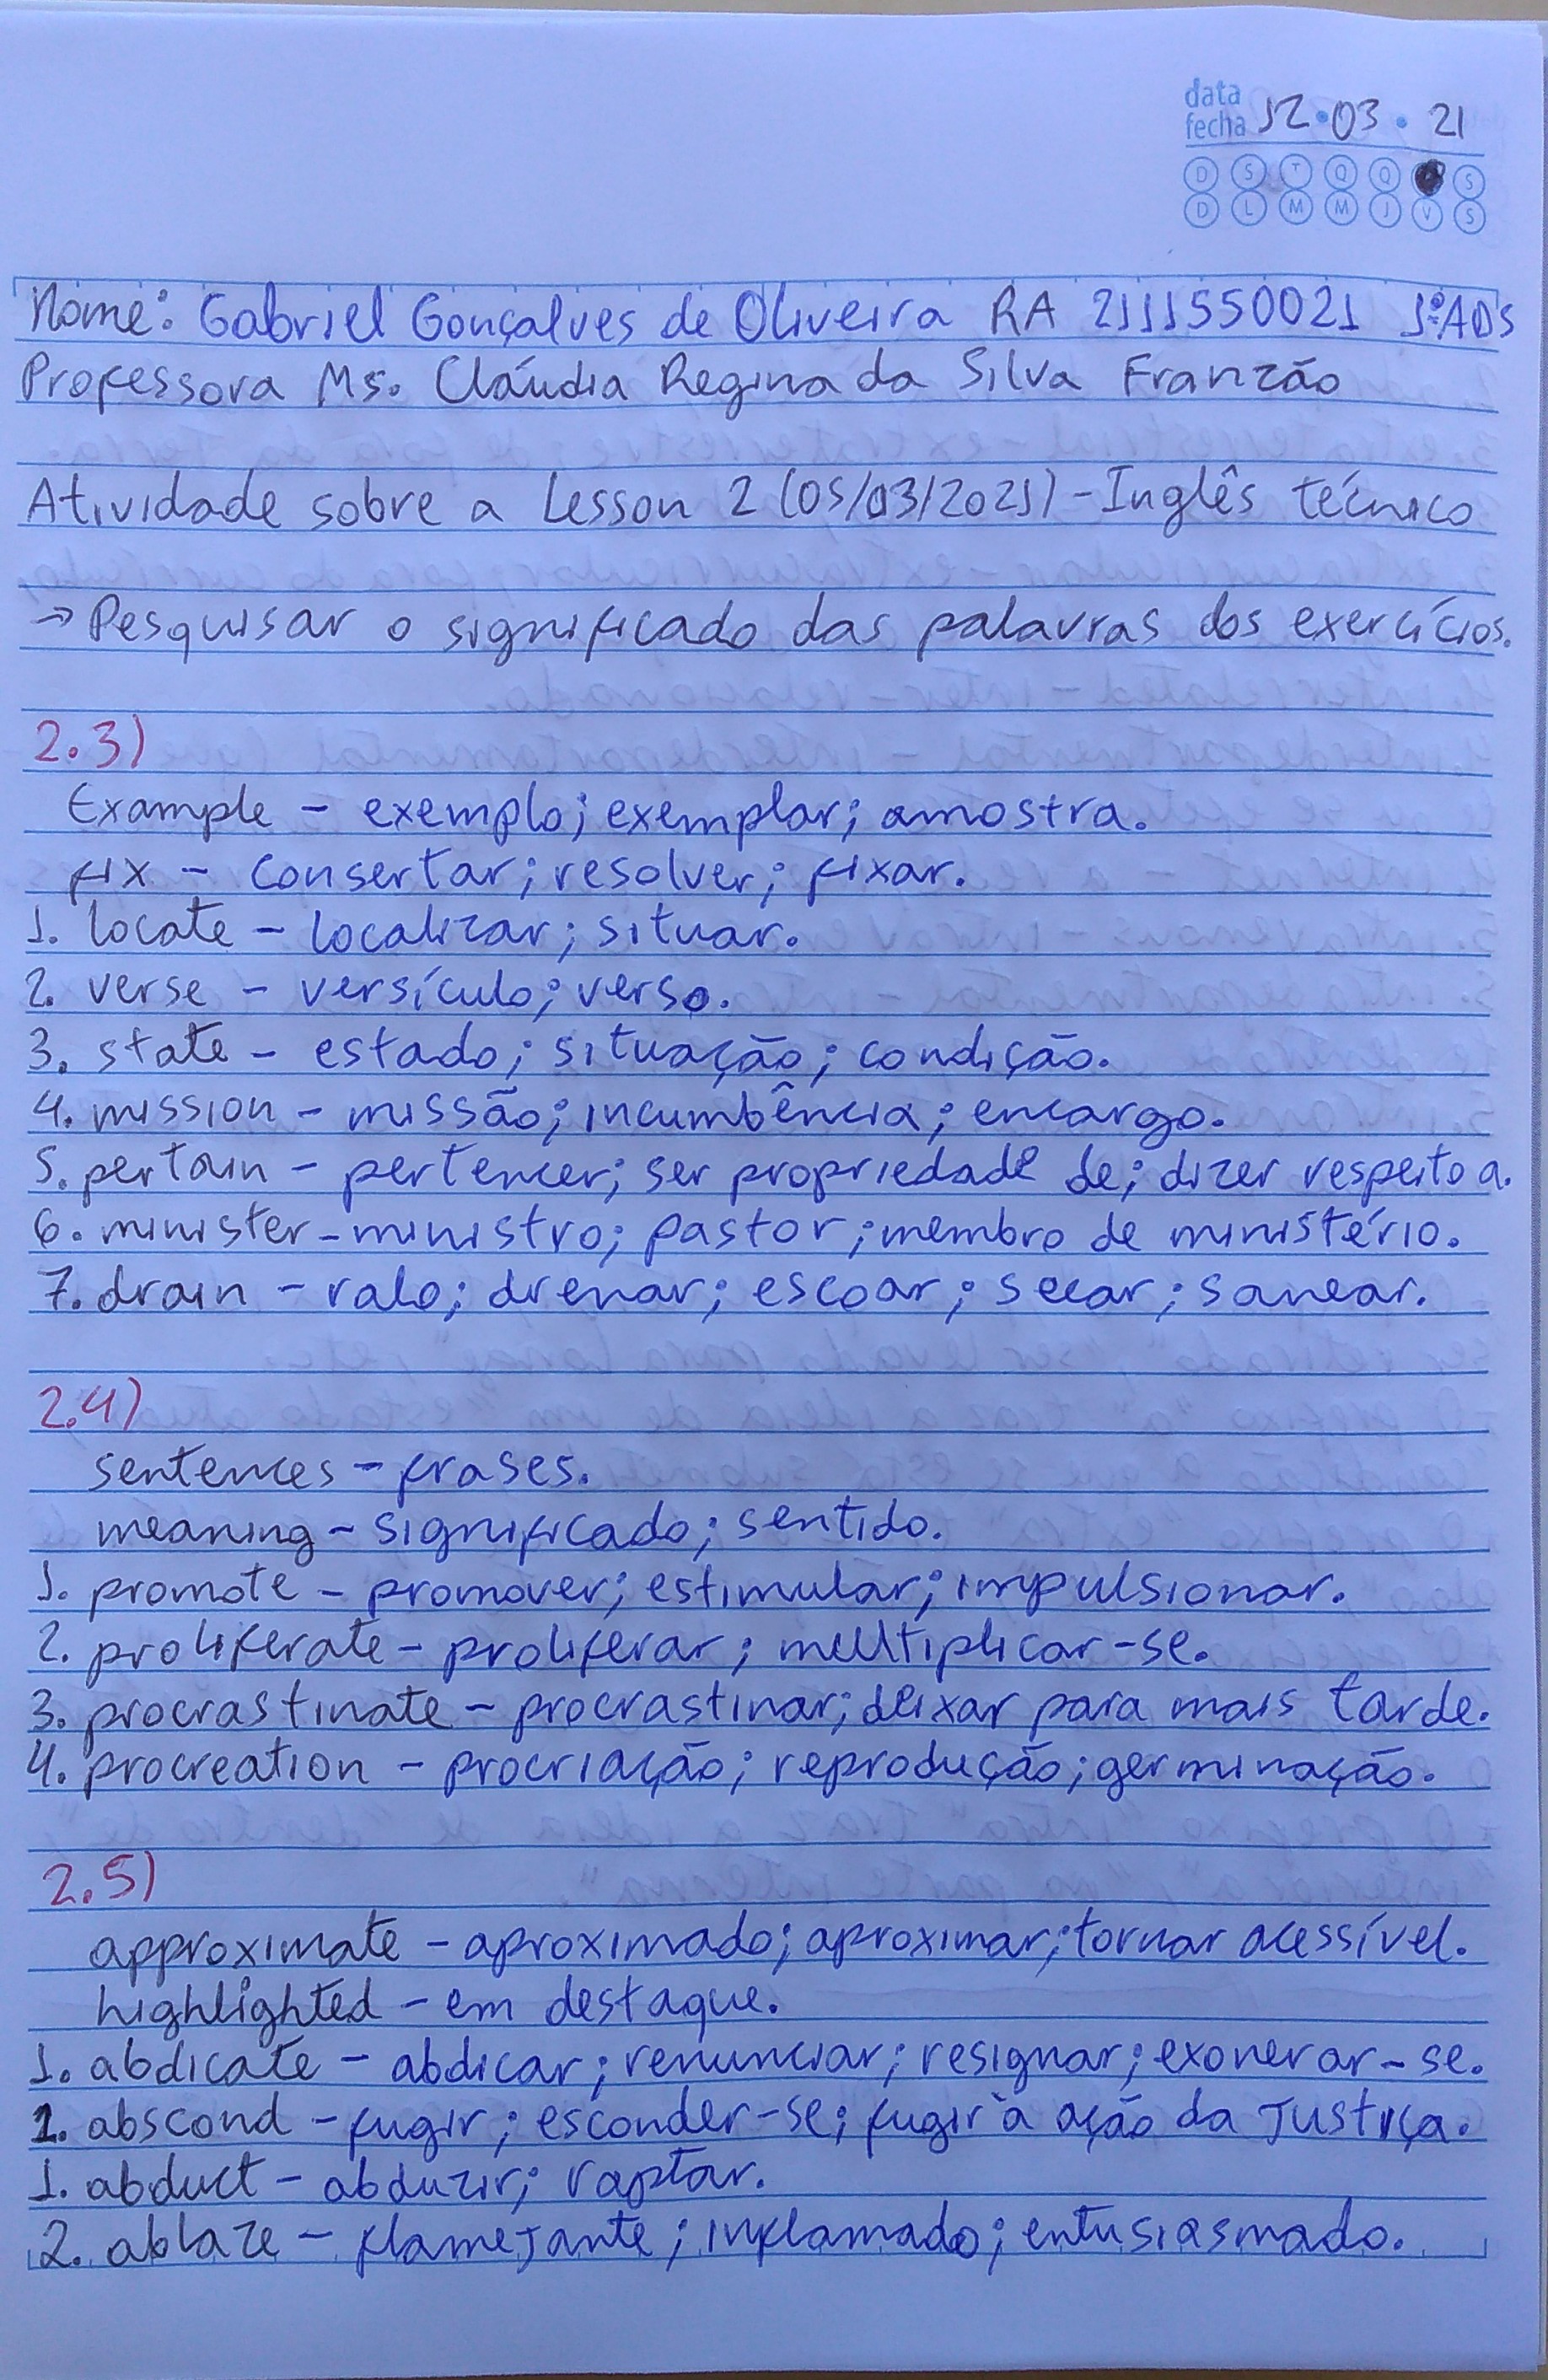 data
fecha 12 • 03 • 21
D S T Q Q S
D L M M J V S
Nome: Gabriel Gonçalves de Oliveira RA 2111550021 1ºADS
Professora Ms. Cláudia Regina da Silva Franzão
Atividade sobre a Lesson 2 (05/03/2021) - Inglês técnico
→ Pesquisar o significado das palavras dos exercícios.
2.3)
Example - exemplo; exemplar; amostra.
fix - consertar; resolver; fixar.
1. locate - localizar; situar.
2. verse - versículo; verso.
3. state - estado; situação; condição.
4. mission - missão; incumbência; encargo.
5. pertain - pertencer; ser propriedade de; dizer respeito a.
6. minister - ministro; pastor; membro de ministério.
7. drain - ralo; drenar; escoar; secar; sanear.
2.4)
sentences - frases.
meaning - significado; sentido.
1. promote - promover; estimular; impulsionar.
2. proliferate - proliferar; multiplicar-se.
3. procrastinate - procrastinar; deixar para mais tarde.
4. procreation - procriação; reprodução; germinação.
2.5)
approximate - aproximado; aproximar; tornar acessível.
highlighted - em destaque.
1. abdicate - abdicar; renunciar; resignar; exonerar-se.
1. abscond - fugir; esconder-se; fugir à ação da Justiça.
1. abduct - abduzir; raptar.
2. ablaze - flamejante; inflamado; entusiasmado.